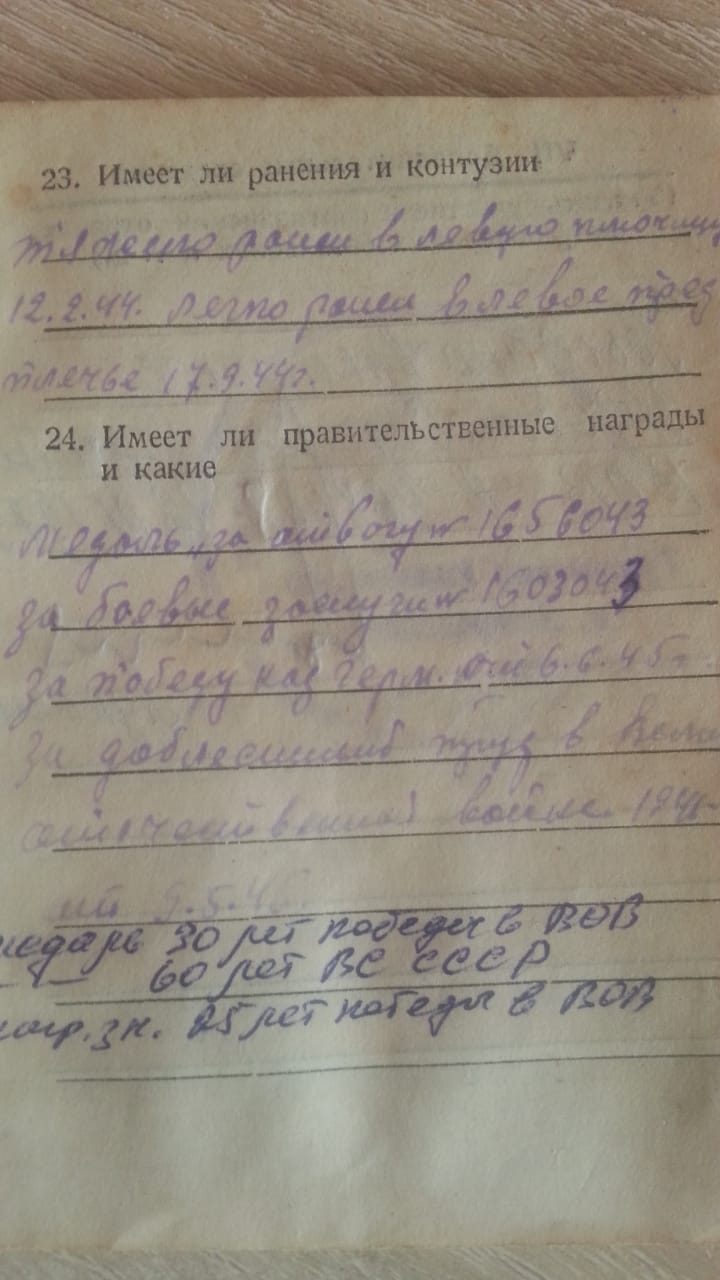 23. Имеет ли ранения и контузии
тяжело ранен в левую
12.2.44. легко ранен в левое пред
плечье 17.9.44г.
24. Имеет ли правительственные награды
и какие
Медаль „за отвагу № 1656043
за боевые заслуги № 1603043
за победу над Герм. от 6.6.45г.
За доблестный труд в Вели
отечественной войне 1941-
от 9.5.45
медаль 30 лет победы в ВОВ
–"– 60 лет ВС СССР
нагр. зн. 25 лет победы в ВОВ